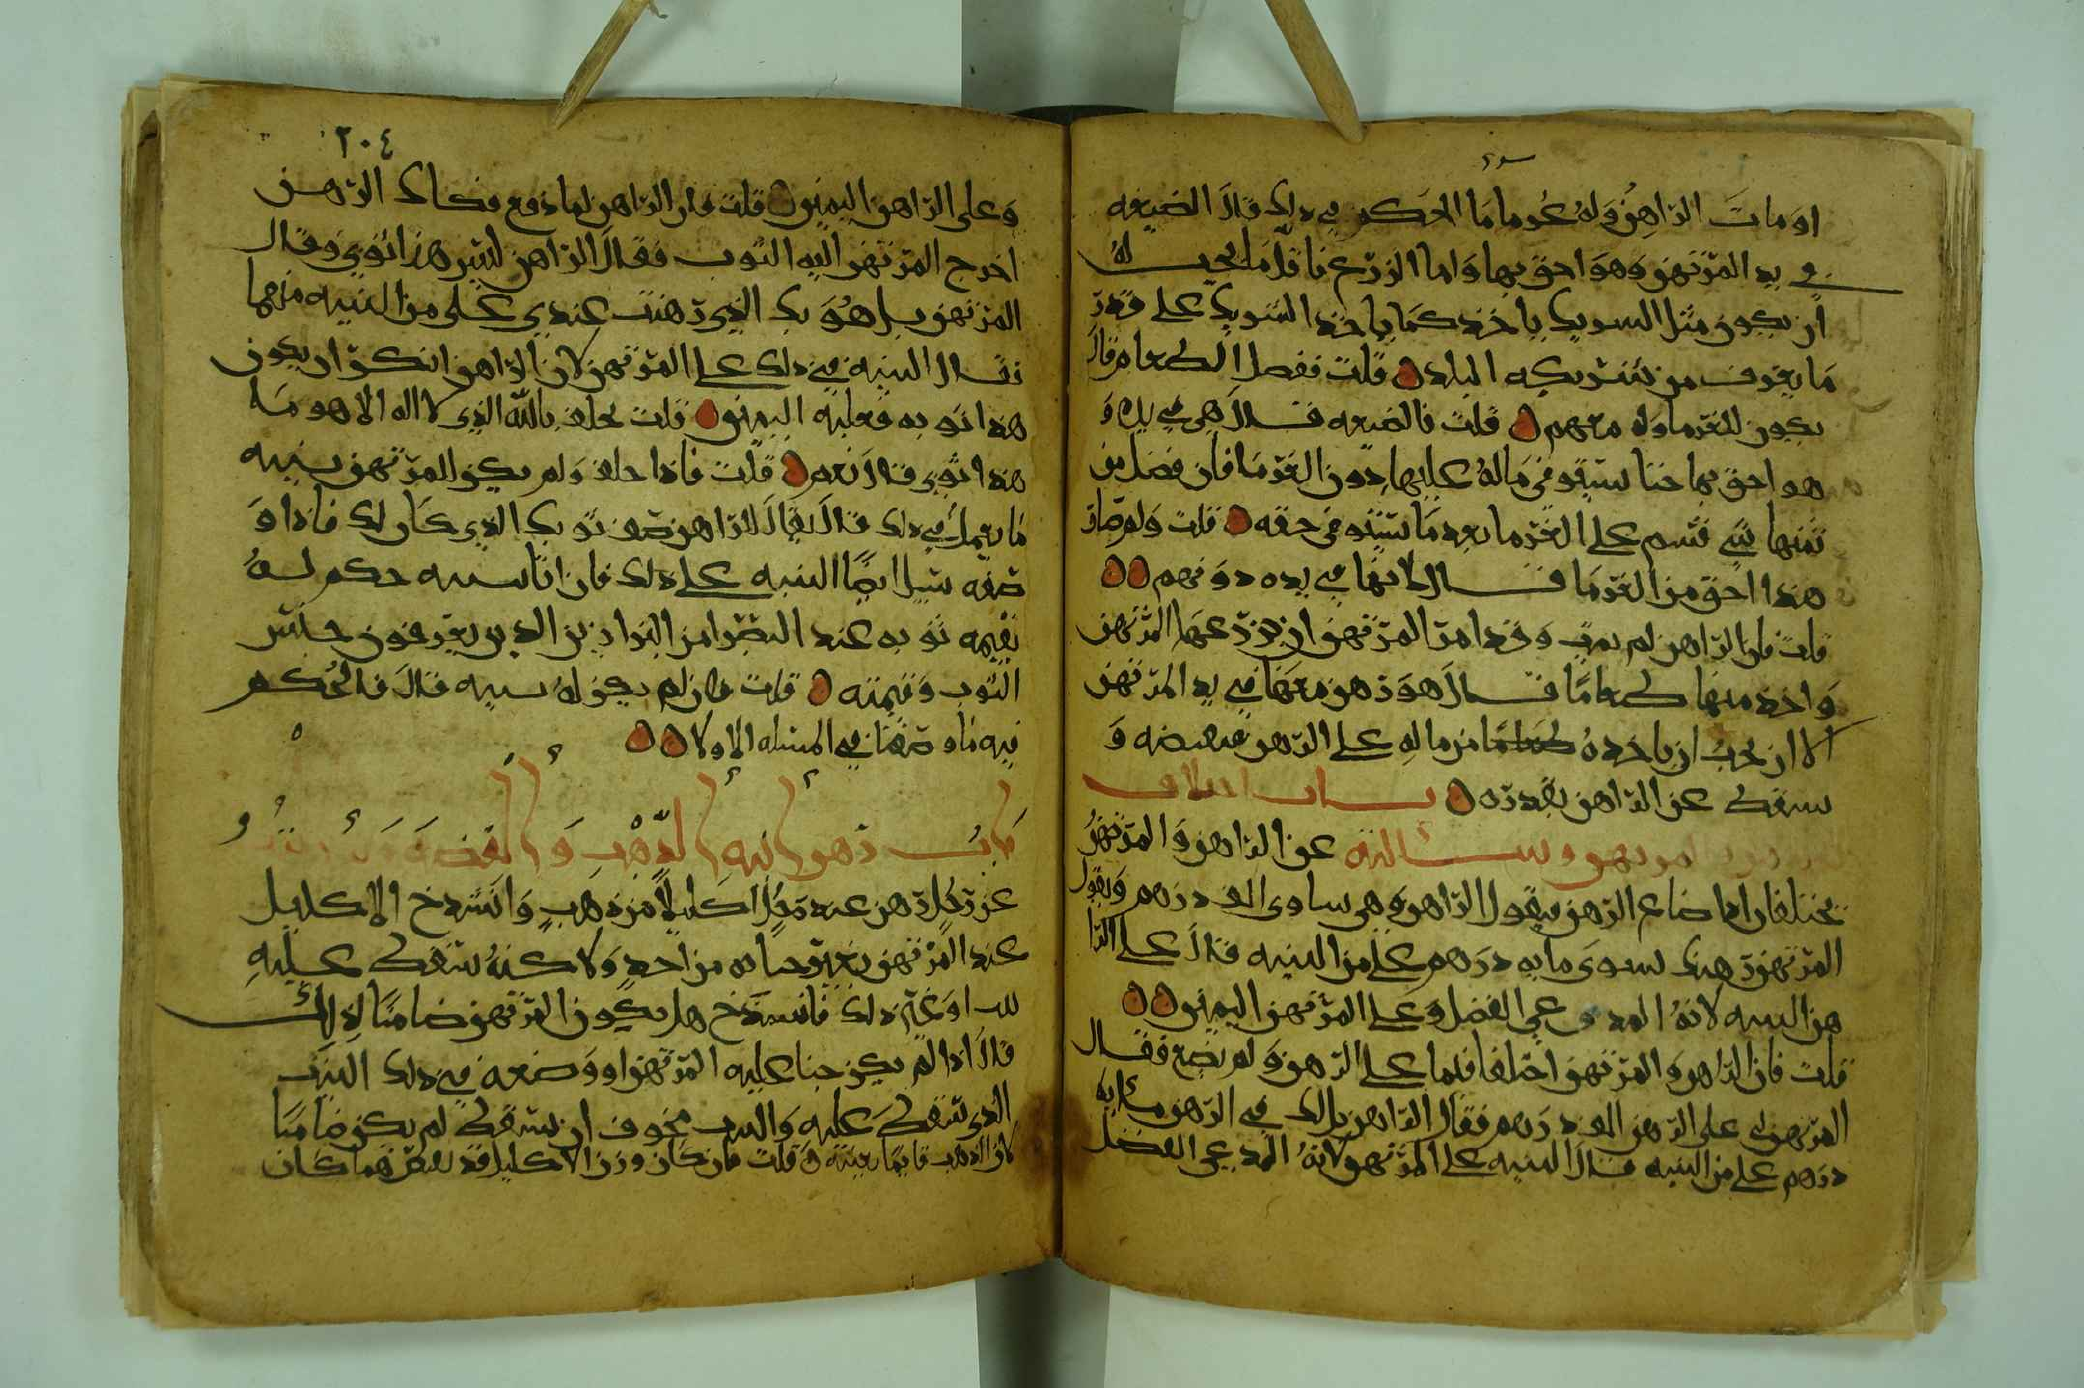 او مات الراهن وله غرما ما الحكم في ذلك قال الضيعه
في يد المرتهن وهو احق بها واما الزرع فاقل ما يجب له
ان يكون مثل الشريك ياخذ كما ياخذ الشريك على قدر
ما يعرف من شريكه البلد قلت ففضل الطعام قال
يكون للغرما وله معهم قلت فالضيعه قال هي في يده و
هو احق بها حتا يستوفي ماله عليها دون الغرما فان فضل من
ثمنها شي قسم على الغرما بعد ما يستوفي حقه قلت ولم صار
هذا احق من الغرما قال لانها في يده دونهم
قلت فان الراهن لم يمت وقد امر المرتهن ان يزرعها المرتهن
واخذ منها طعاما قال هو رهن معها في يد المرتهن
الا ان يحب ان ياخذه من ماله على الرهن فيقبضه و
يسقط عن الراهن بقدره باب اختلاف
الراهن والمرتهن وسالته عن الراهن والمرتهن
يختلفان اذا ضاع الرهن فيقول الراهن هي ساوى الف درهم ويقول
المرتهن رهنك يسوى مايه درهم على من البنيه قال على الرا
هن البينه لانه المدعي الفضل وعلى المرتهن اليمين
قلت فان الراهن والمرتهن اختلفا فلما على الرهن ولم يضع فقال
المرتهن لي على الرهن الف درهم فقال الراهن بل لك في الرهن مايه
درهم على من البنيه قال البنيه على المرتهن لانه المدعي الفضل
٢٠٤
وعلى الراهن اليمين قلت فان الراهن لما دفع فكاك الرهن
اخرج المرتهن اليه الثوب فقال الراهن ليس هذا ثوبي وقال
المرتهن بل هو بك الذي رهنت عندي على من البنيه منهما
قال البنيه في ذلك على المرتهن لان الراهن انكر ان يكون
هذا ثوبه فعليه اليمين قلت يحلف بالله الذي لا اله الا هو ما
هذا ثوبي قال نعم قلت فاذا حلف ولم يكن للمرتهن بينه
ما يعمل في ذلك قال يقال للراهن صف ثوبك الذي كان لك فاذا و
صفه سيل ايضا البنيه على ذلك فان اقام بينه حكم له
بقيمه ثوبه عند البصرا من البزازين الذين يعرفون جنس
الثوب وقيمته قلت فان لم يكن له بينه قال فالحكم
فيه ما وصفنا في المسئله الاولا
باب رهن انيه الذهب والفضه
عن رجل رهن عند رجل اكليلا من ذهب وانشدخ الاكليل
عند المرتهن بغير جنايه من احد ولاكنه سقط عليه
بيت او غير ذلك فانشدخ هل يكون المرتهن ضامنا لذلك
قال اذا لم يكن جنا عليه المرتهن او وضعه في ذلك البيت
الذي سقط عليه والبيت مخوف ان يسقط لم يكن ضامنا
لان الذهب قايما بعينه قلت فان كان وزن الاكليل قد نقص عما كان